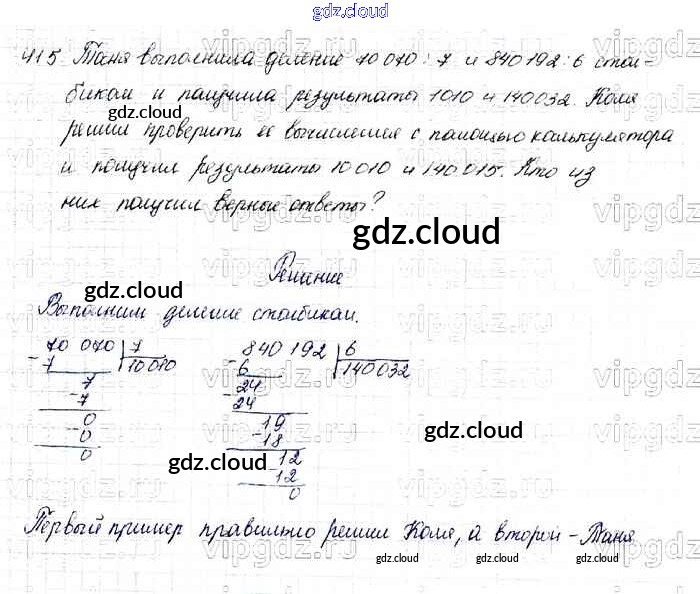 gdz.cloud
415 Таня выполнила деление 70 070 : 7 и 840 192 : 6 стол-
биком и получила результаты 1010 и 140032. Коля
gdz.cloud
решил проверить ее вычисления с помощью калькулятора
и получил результаты 10 010 и 140 015. Кто из
них получил верные ответы?
gdz.cloud
Решение
gdz.cloud
Выполним деление столбиком.
70 070 | 7 840 192 | 6
- 7 10 010 - 6 140 032
7 24
- 7 - 24
0 19
- 0 - 18
0 12
- 12
0
gdz.cloud
gdz.cloud
Первый пример правильно решил Коля, а второй - Таня
gdz.cloud gdz.cloud gdz.cloud